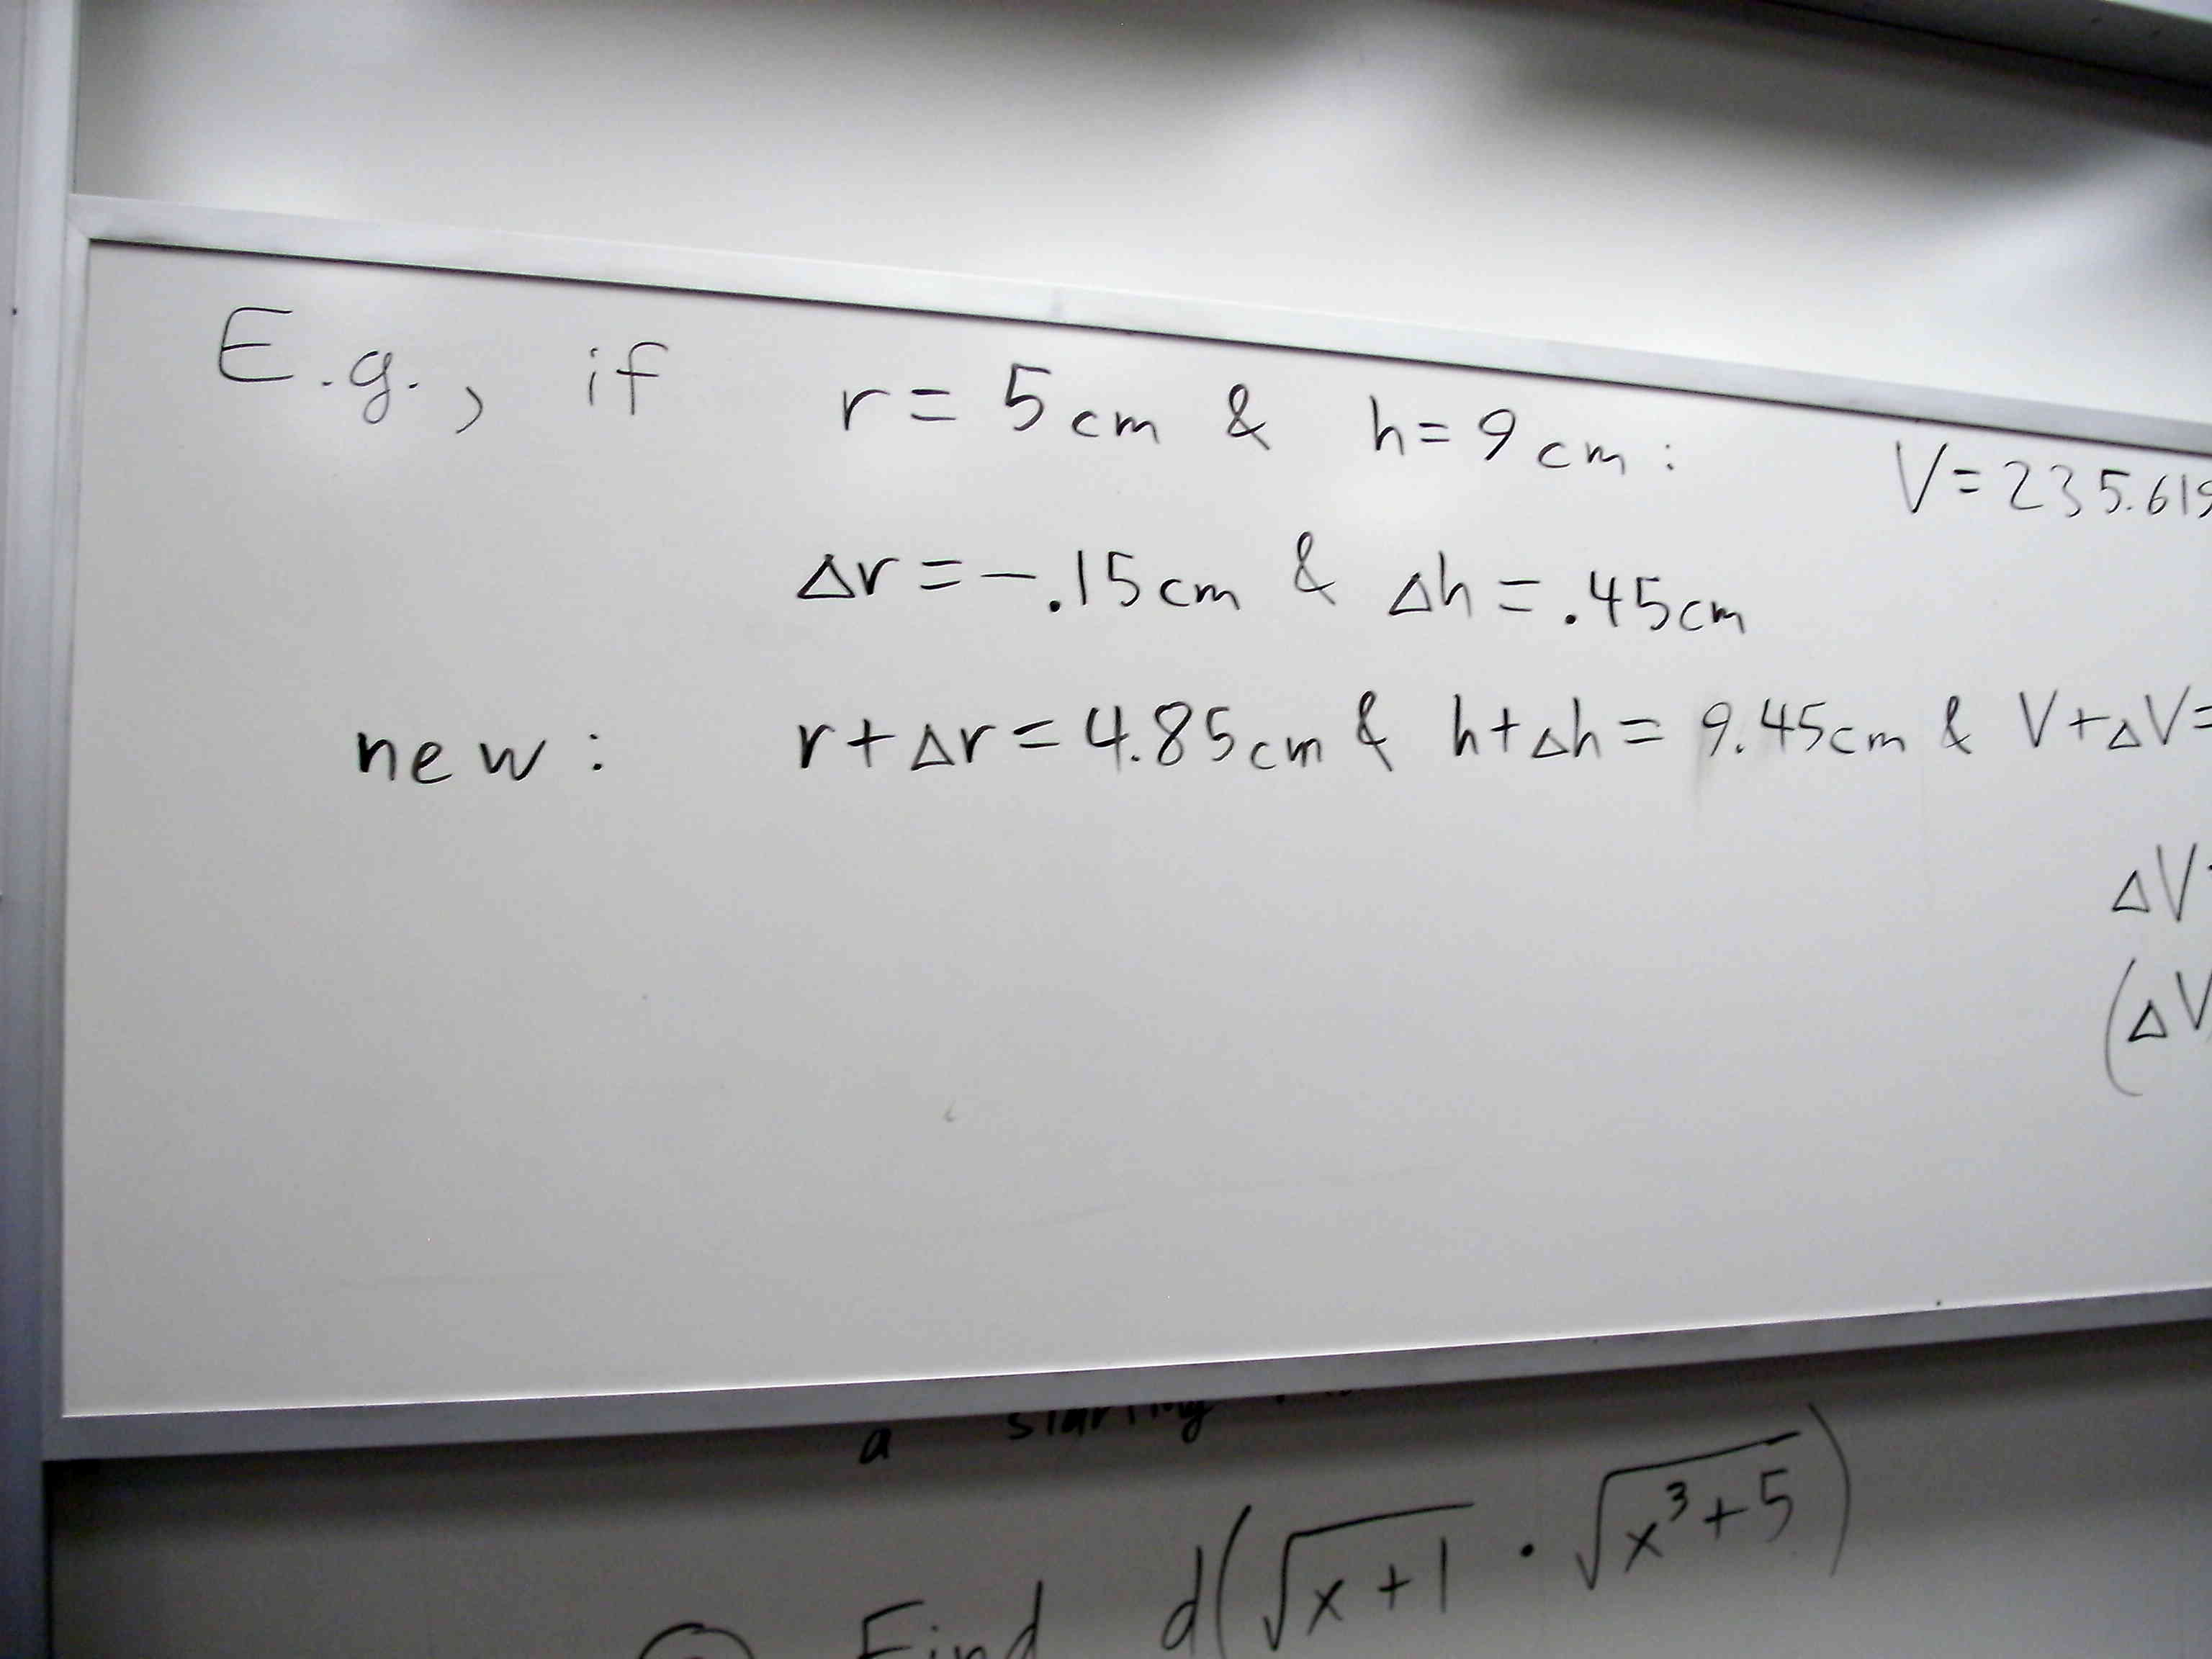 E.g., if r = 5 cm & h = 9 cm : V = 235.619
Δr = -.15 cm & Δh = .45 cm
new : r + Δr = 4.85 cm & h + Δh = 9.45 cm & V + ΔV =
ΔV
(ΔV
a starting
Find d(√(x+1) · √(x³+5))